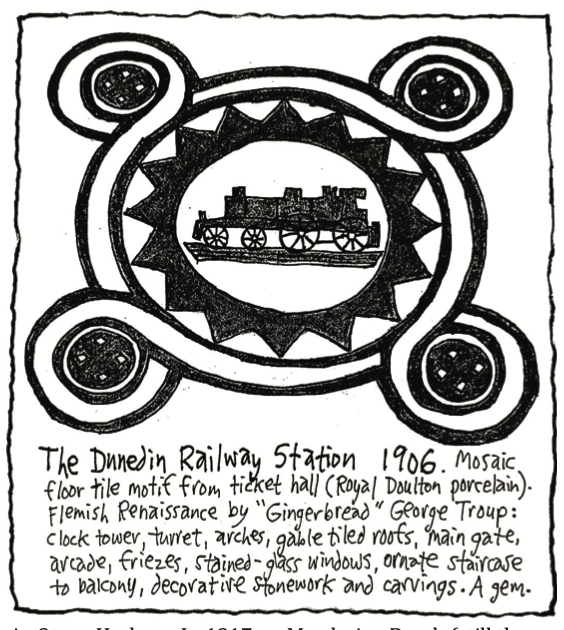 The Dunedin Railway Station 1906. Mosaic
floor tile motif from ticket hall (Royal Doulton porcelain).
Flemish Renaissance by "Gingerbread" George Troup:
clock tower, turret, arches, gable tiled roofs, main gate,
arcade, friezes, stained-glass windows, ornate staircase
to balcony, decorative stonework and carvings. A gem.